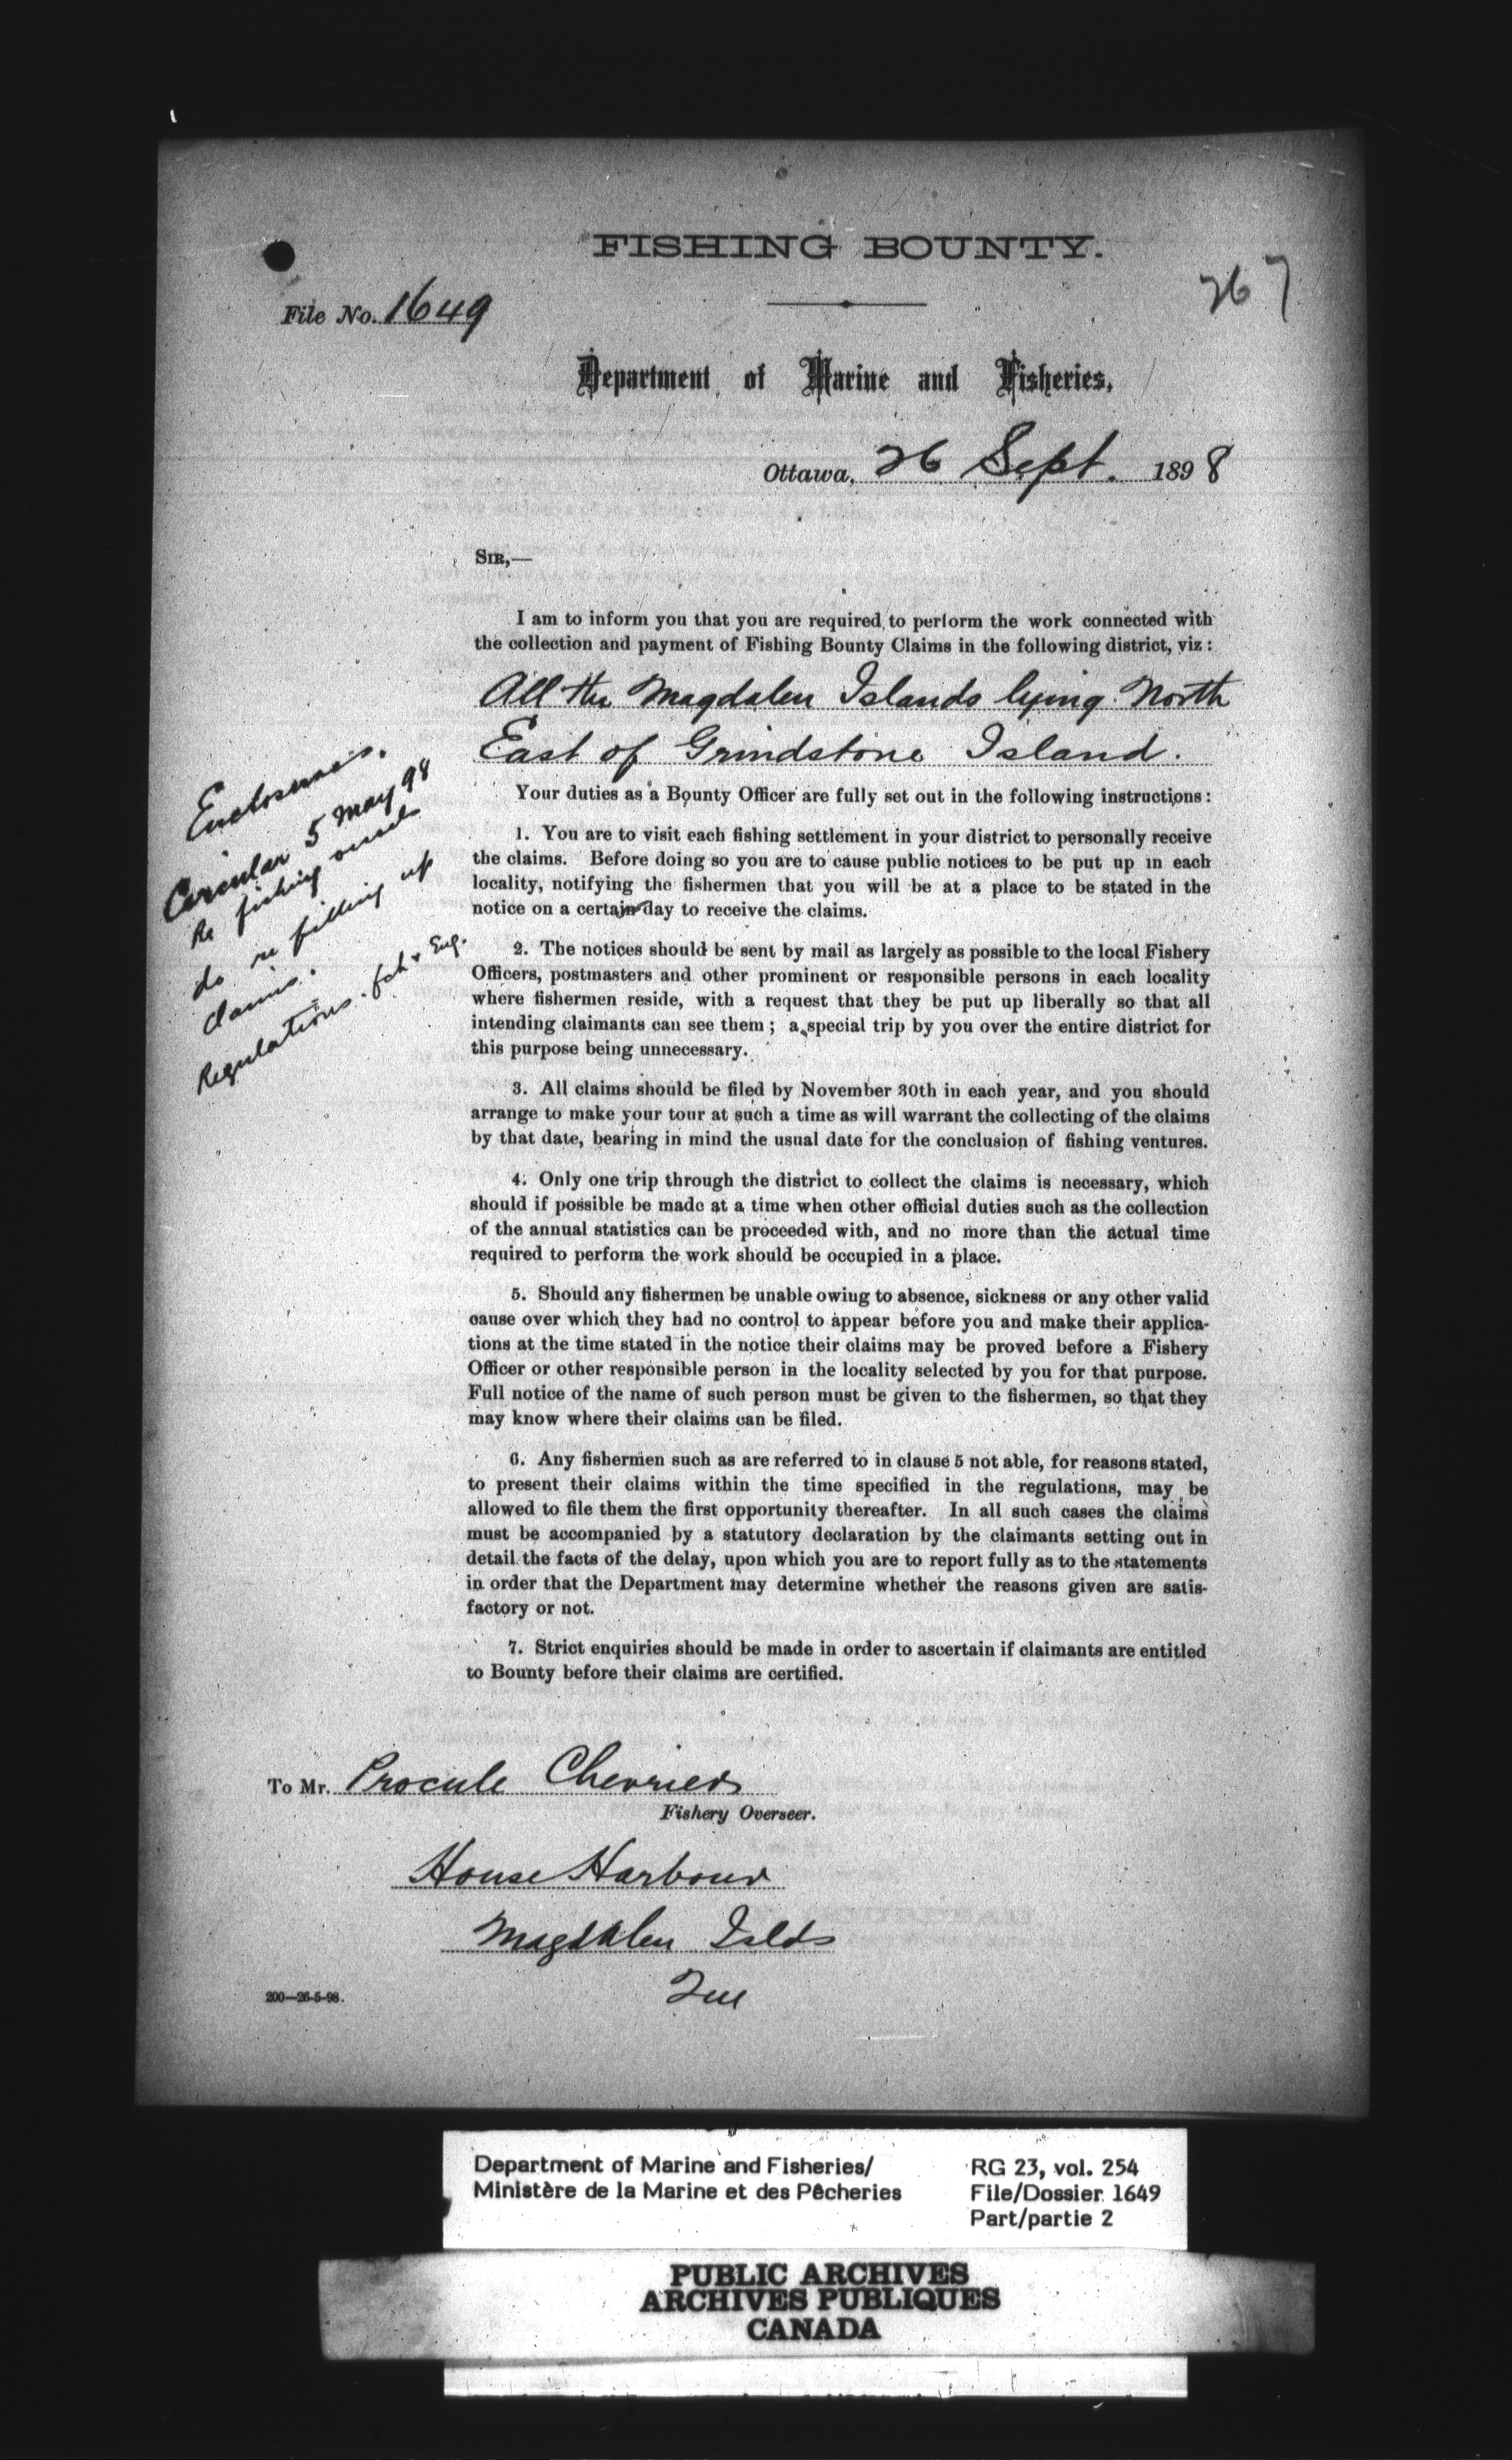 FISHING BOUNTY.
267
File No. 1649
Department of Marine and Fisheries,
Ottawa, 26 Sept. 1898
SIR,—
I am to inform you that you are required to perform the work connected with
the collection and payment of Fishing Bounty Claims in the following district, viz:
All the Magdalen Islands lying North
East of Grindstone Island.
Enclosures.
Circular 5 May 98
Re fishing vessels
do re filling up
claims.
Regulations. fch & Eng.
Your duties as a Bounty Officer are fully set out in the following instructions:
1. You are to visit each fishing settlement in your district to personally receive
the claims. Before doing so you are to cause public notices to be put up in each
locality, notifying the fishermen that you will be at a place to be stated in the
notice on a certain day to receive the claims.
2. The notices should be sent by mail as largely as possible to the local Fishery
Officers, postmasters and other prominent or responsible persons in each locality
where fishermen reside, with a request that they be put up liberally so that all
intending claimants can see them; a special trip by you over the entire district for
this purpose being unnecessary.
3. All claims should be filed by November 30th in each year, and you should
arrange to make your tour at such a time as will warrant the collecting of the claims
by that date, bearing in mind the usual date for the conclusion of fishing ventures.
4. Only one trip through the district to collect the claims is necessary, which
should if possible be made at a time when other official duties such as the collection
of the annual statistics can be proceeded with, and no more than the actual time
required to perform the work should be occupied in a place.
5. Should any fishermen be unable owing to absence, sickness or any other valid
cause over which they had no control to appear before you and make their applica-
tions at the time stated in the notice their claims may be proved before a Fishery
Officer or other responsible person in the locality selected by you for that purpose.
Full notice of the name of such person must be given to the fishermen, so that they
may know where their claims can be filed.
6. Any fishermen such as are referred to in clause 5 not able, for reasons stated,
to present their claims within the time specified in the regulations, may be
allowed to file them the first opportunity thereafter. In all such cases the claims
must be accompanied by a statutory declaration by the claimants setting out in
detail the facts of the delay, upon which you are to report fully as to the statements
in order that the Department may determine whether the reasons given are satis-
factory or not.
7. Strict enquiries should be made in order to ascertain if claimants are entitled
to Bounty before their claims are certified.
To Mr. Procule Chevrier
Fishery Overseer.
House Harbour
Magdalen Islds
Que
200—26-5-98.
Department of Marine and Fisheries/
Ministère de la Marine et des Pêcheries
RG 23, vol. 254
File/Dossier 1649
Part/partie 2
PUBLIC ARCHIVES
ARCHIVES PUBLIQUES
CANADA